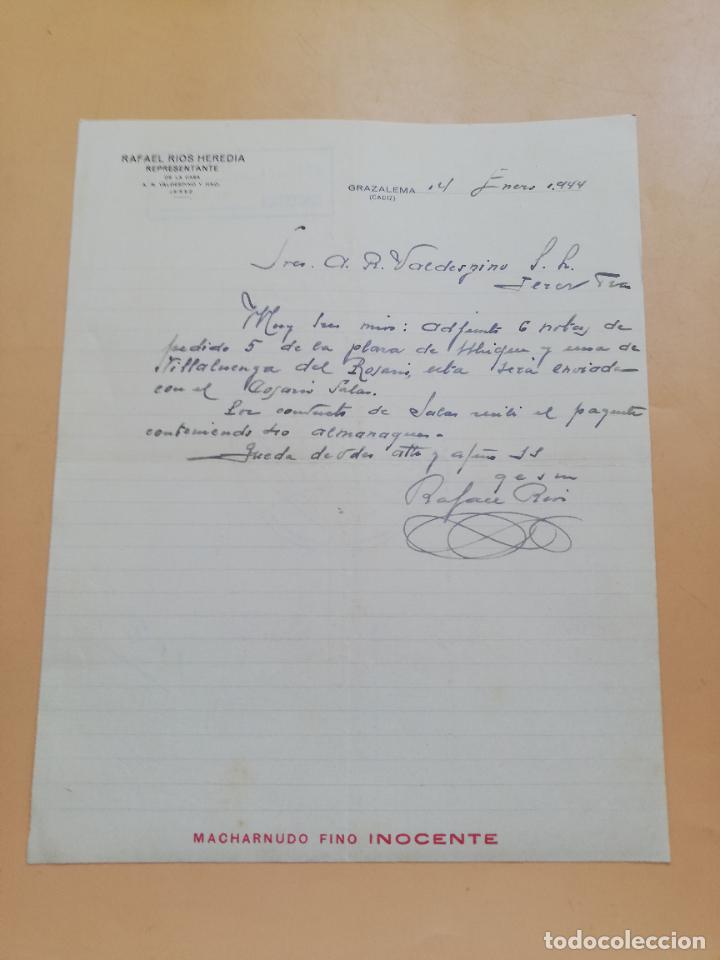 RAFAEL RIOS HEREDIA
REPRESENTANTE
DE LA CASA
A. R. VALDESPINO Y HNO.
JEREZ
GRAZALEMA 14 Enero 1944
(CADIZ)
Sres. A. R. Valdespino S. L.
Jerez Fra
Muy Sres mios: adjunto 6 notas de
pedido 5 de la plaza de Ubrique y una de
Villaluenga del Rosario, esta será enviada
con el Cosario Salas.
Por conducto de Salas recibi el paquete
conteniendo almanaques.
Queda de Vdes atto y afmo SS
q e s m
Rafael Rios
MACHARNUDO FINO INOCENTE
todocoleccion
todocoleccion.net